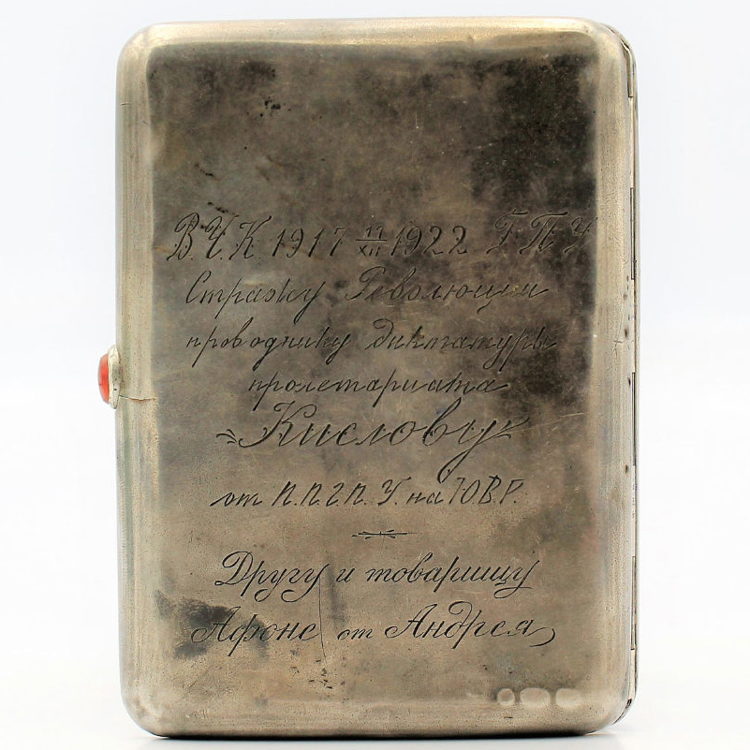 В.Ч.К. 1917 17/XII 1922 Г.П.У
Стражу Революции
проводнику диктатуры
пролетариата
Кислову
от П.П.Г.П.У. на Ю.В.Р.
Другу и товарищу
Афоне от Андрея